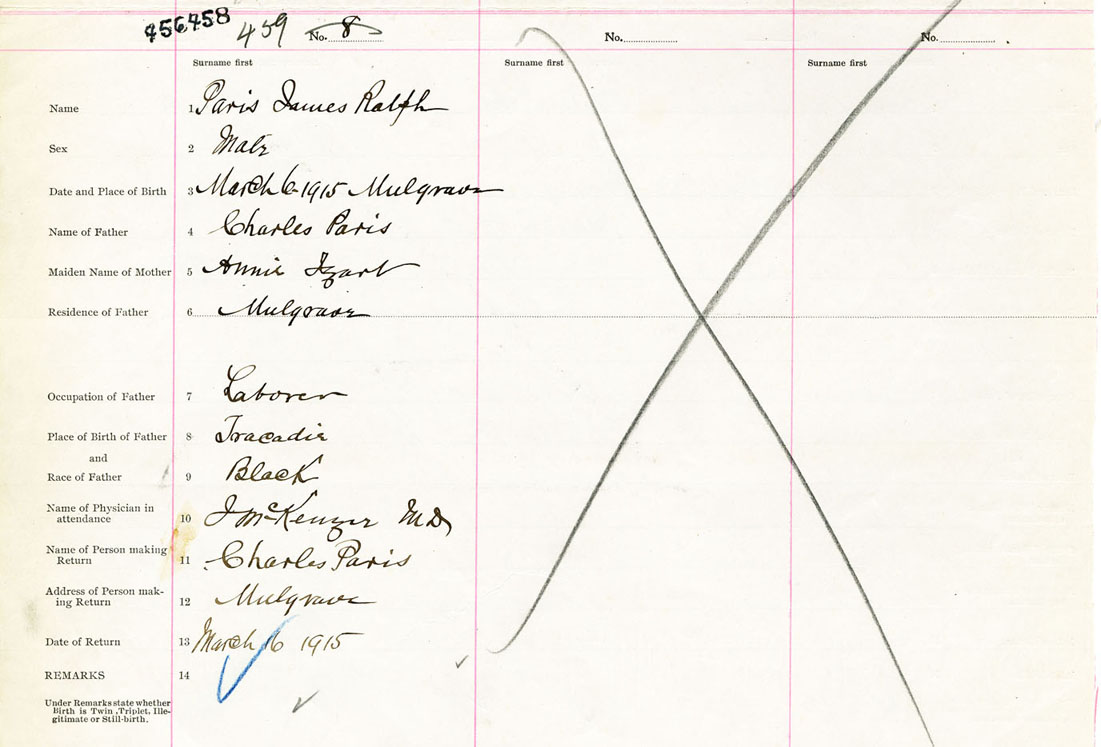 456458 459 No. 8 No. No.
Surname first Surname first Surname first
Name 1 Paris James Ralph
Sex 2 Male
Date and Place of Birth 3 March 6 1915 Mulgrave
Name of Father 4 Charles Paris
Maiden Name of Mother 5 Annie Izart
Residence of Father 6 Mulgrave
Occupation of Father 7 Laborer
Place of Birth of Father 8 Tracadie
and
Race of Father 9 Black
Name of Physician in
attendance 10 J McKenzie MD
Name of Person making
Return 11 Charles Paris
Address of Person mak-
ing Return 12 Mulgrave
Date of Return 13 March 16 1915
REMARKS 14
Under Remarks state whether
Birth is Twin, Triplet, Ille-
gitimate or Still-birth.